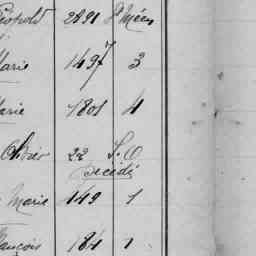 Léopold 2891 St Méen
Marie 1497 3
Marie 1801 4
Olivier 22 S. O
Décédé
Marie 149 1
François 184 1